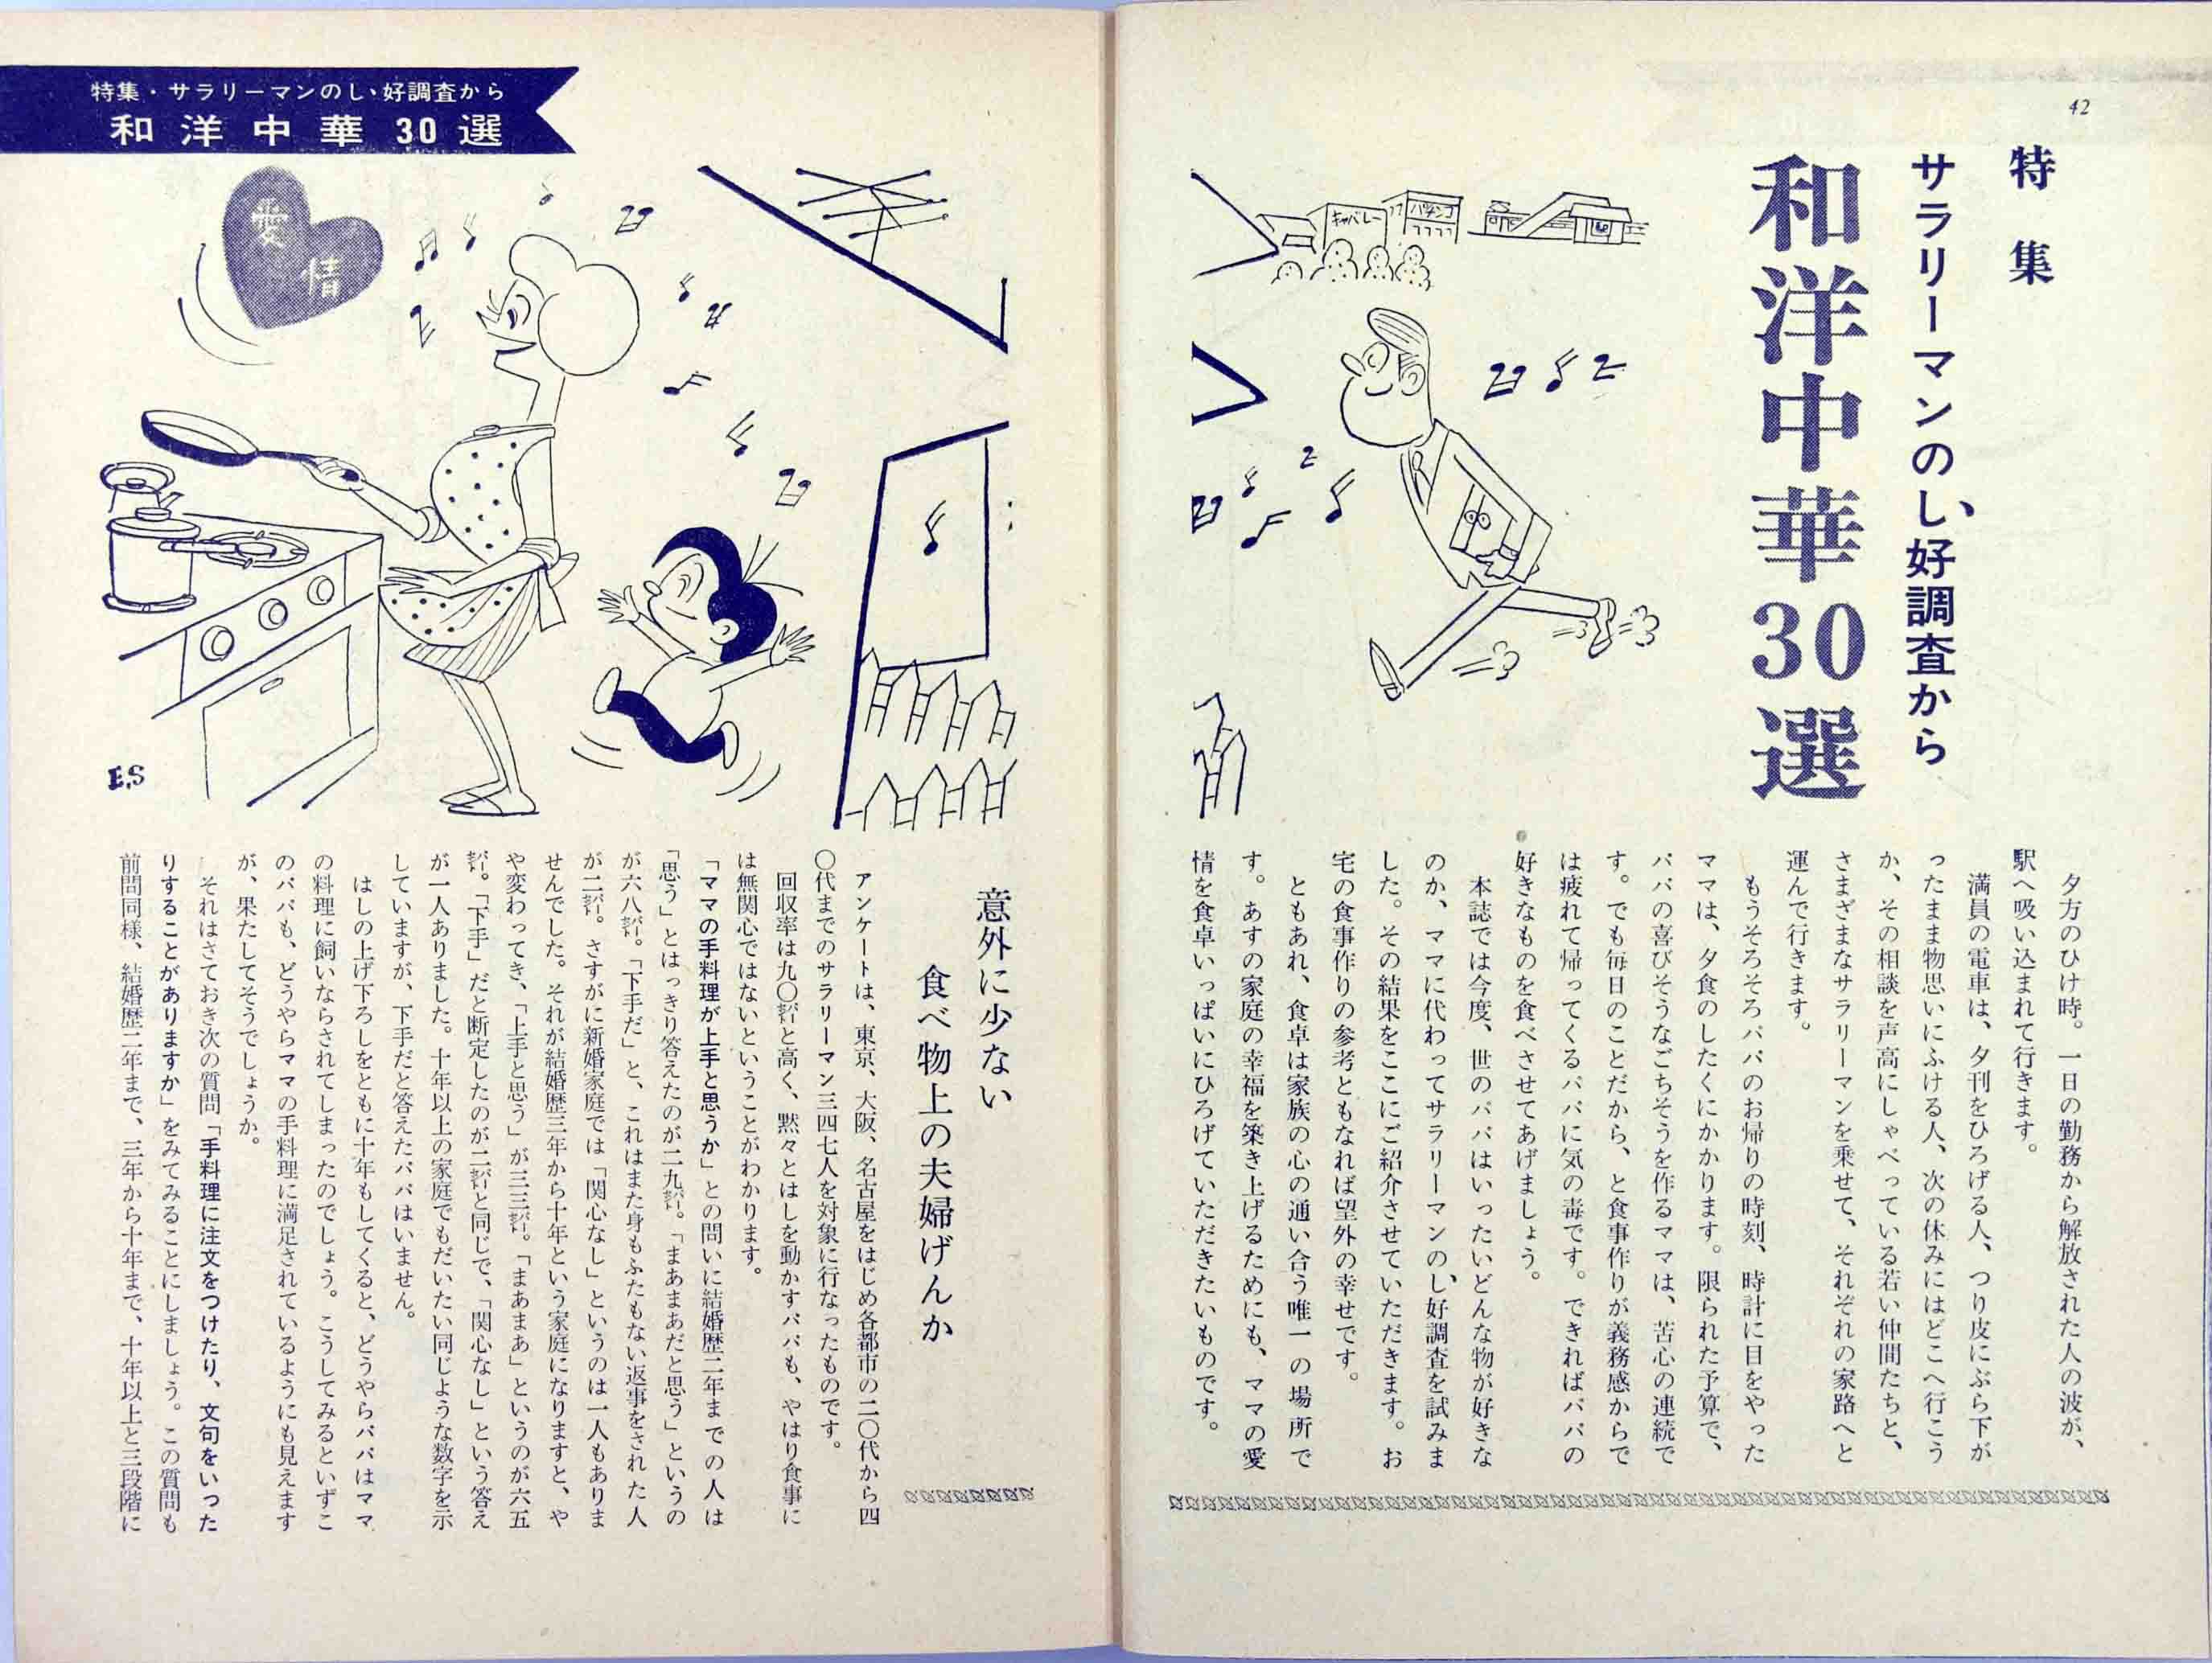 42
特集
サラリーマンのし好調査から
和洋中華30選
キャバレー
パチンコ
夕方のひけ時。一日の勤務から解放された人の波が、
駅へ吸い込まれて行きます。
満員の電車は、夕刊をひろげる人、つり皮にぶら下が
ったまま物思いにふける人、次の休みにはどこへ行こう
か、その相談を声高にしゃべっている若い仲間たちと、
さまざまなサラリーマンを乗せて、それぞれの家路へと
運んで行きます。
もうそろそろパパのお帰りの時刻、時計に目をやった
ママは、夕食のしたくにかかります。限られた予算で、
パパの喜びそうなごちそうを作るママは、苦心の連続で
す。でも毎日のことだから、と食事作りが義務感からで
は疲れて帰ってくるパパに気の毒です。できればパパの
好きなものを食べさせてあげましょう。
本誌では今度、世のパパはいったいどんな物が好きな
のか、ママに代わってサラリーマンのし好調査を試みま
した。その結果をここにご紹介させていただきます。お
宅の食事作りの参考ともなれば望外の幸せです。
ともあれ、食卓は家族の心の通い合う唯一の場所で
す。あすの家庭の幸福を築き上げるためにも、ママの愛
情を食卓いっぱいにひろげていただきたいものです。
特集・サラリーマンのし好調査から
和洋中華30選
愛情
E.S
意外に少ない
食べ物上の夫婦げんか
アンケートは、東京、大阪、名古屋をはじめ各都市の二〇代から四
〇代までのサラリーマン三四七人を対象に行なったものです。
回収率は九〇㌫と高く、黙々とはしを動かすパパも、やはり食事に
は無関心ではないということがわかります。
「ママの手料理が上手と思うか」との問いに結婚歴二年までの人は
「思う」とはっきり答えたのが二九㌫。「まあまあだと思う」というの
が六八㌫。「下手だ」と、これはまた身もふたもない返事をされた人
が二㌫。さすがに新婚家庭では「関心なし」というのは一人もありま
せんでした。それが結婚歴三年から十年という家庭になりますと、や
や変わってき、「上手と思う」が三三㌫。「まあまあ」というのが六五
㌫。「下手」だと断定したのが二㌫と同じで、「関心なし」という答え
が一人ありました。十年以上の家庭でもだいたい同じような数字を示
していますが、下手だと答えたパパはいません。
はしの上げ下ろしをともに十年もしてくると、どうやらパパはママ
の料理に飼いならされてしまったのでしょう。こうしてみるといずこ
のパパも、どうやらママの手料理に満足されているようにも見えます
が、果たしてそうでしょうか。
それはさておき次の質問「手料理に注文をつけたり、文句をいった
りすることがありますか」をみてみることにしましょう。この質問も
前問同様、結婚歴二年まで、三年から十年まで、十年以上と三段階に